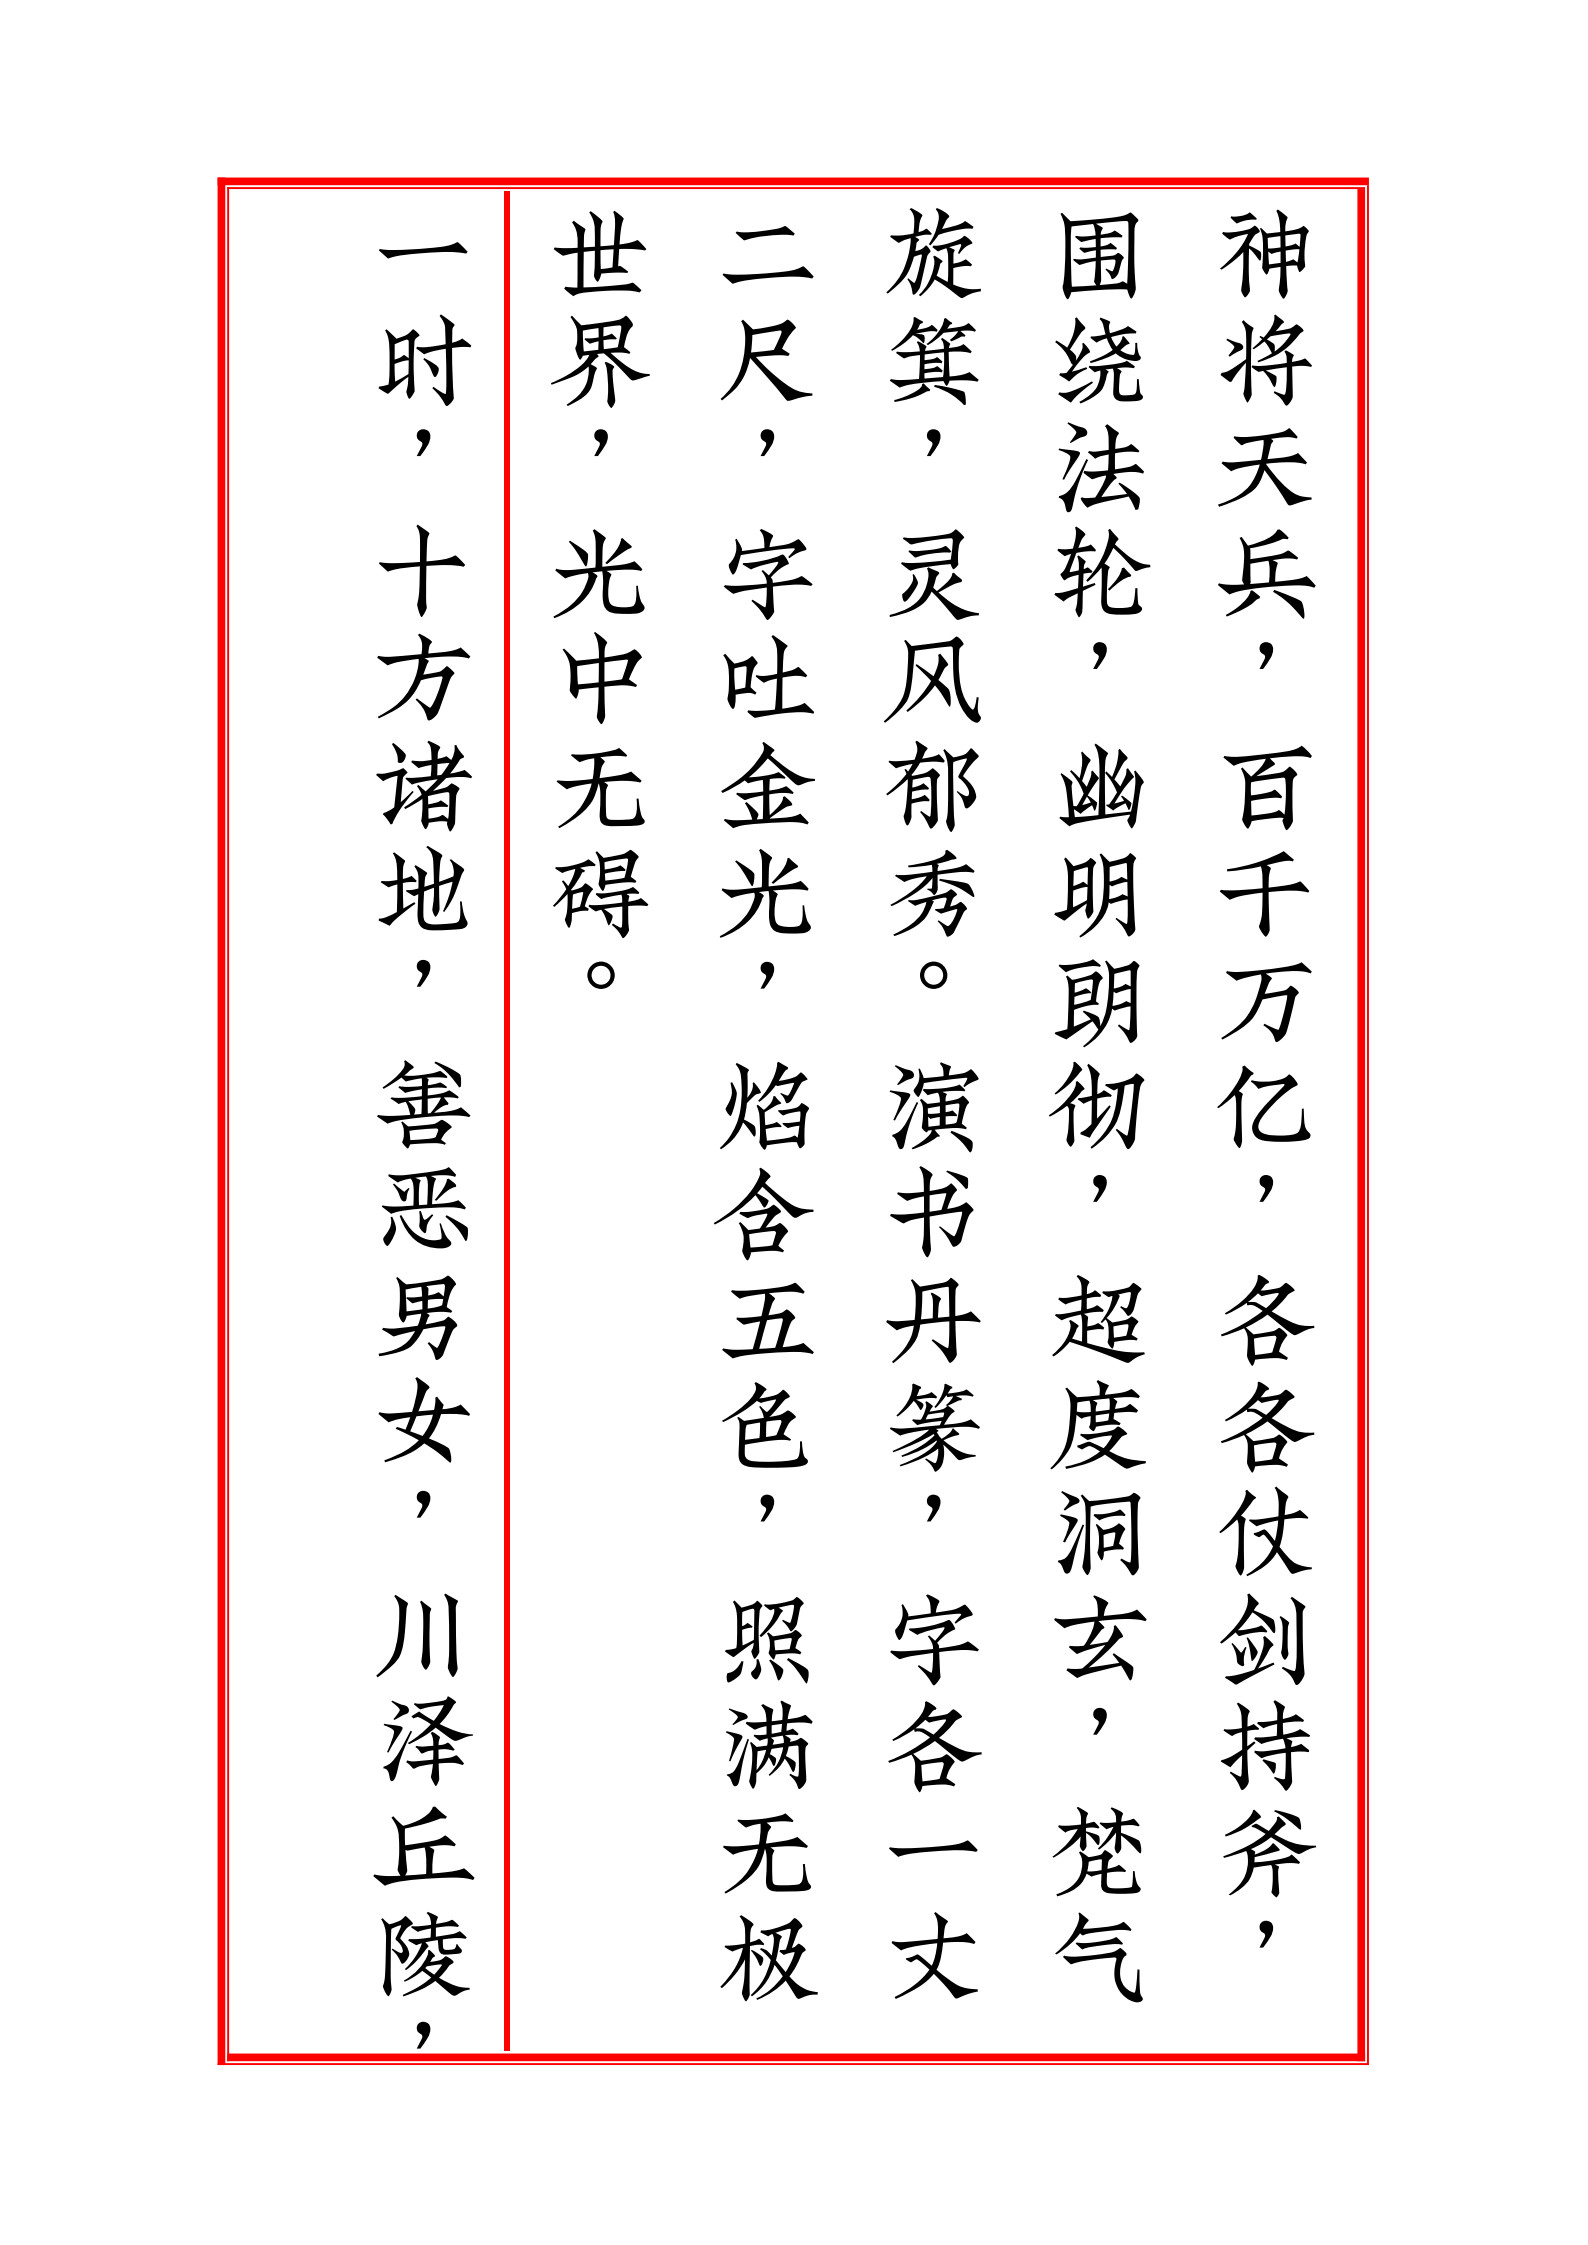 神将天兵，百千万亿，各各仗剑持斧，
围绕法轮，幽明朗彻，超度洞玄，梵气
旋箕，灵风郁秀。演书丹篆，字各一丈
二尺，字吐金光，焰含五色，照满无极
世界，光中无碍。
一时，十方诸地，善恶男女，川泽丘陵，